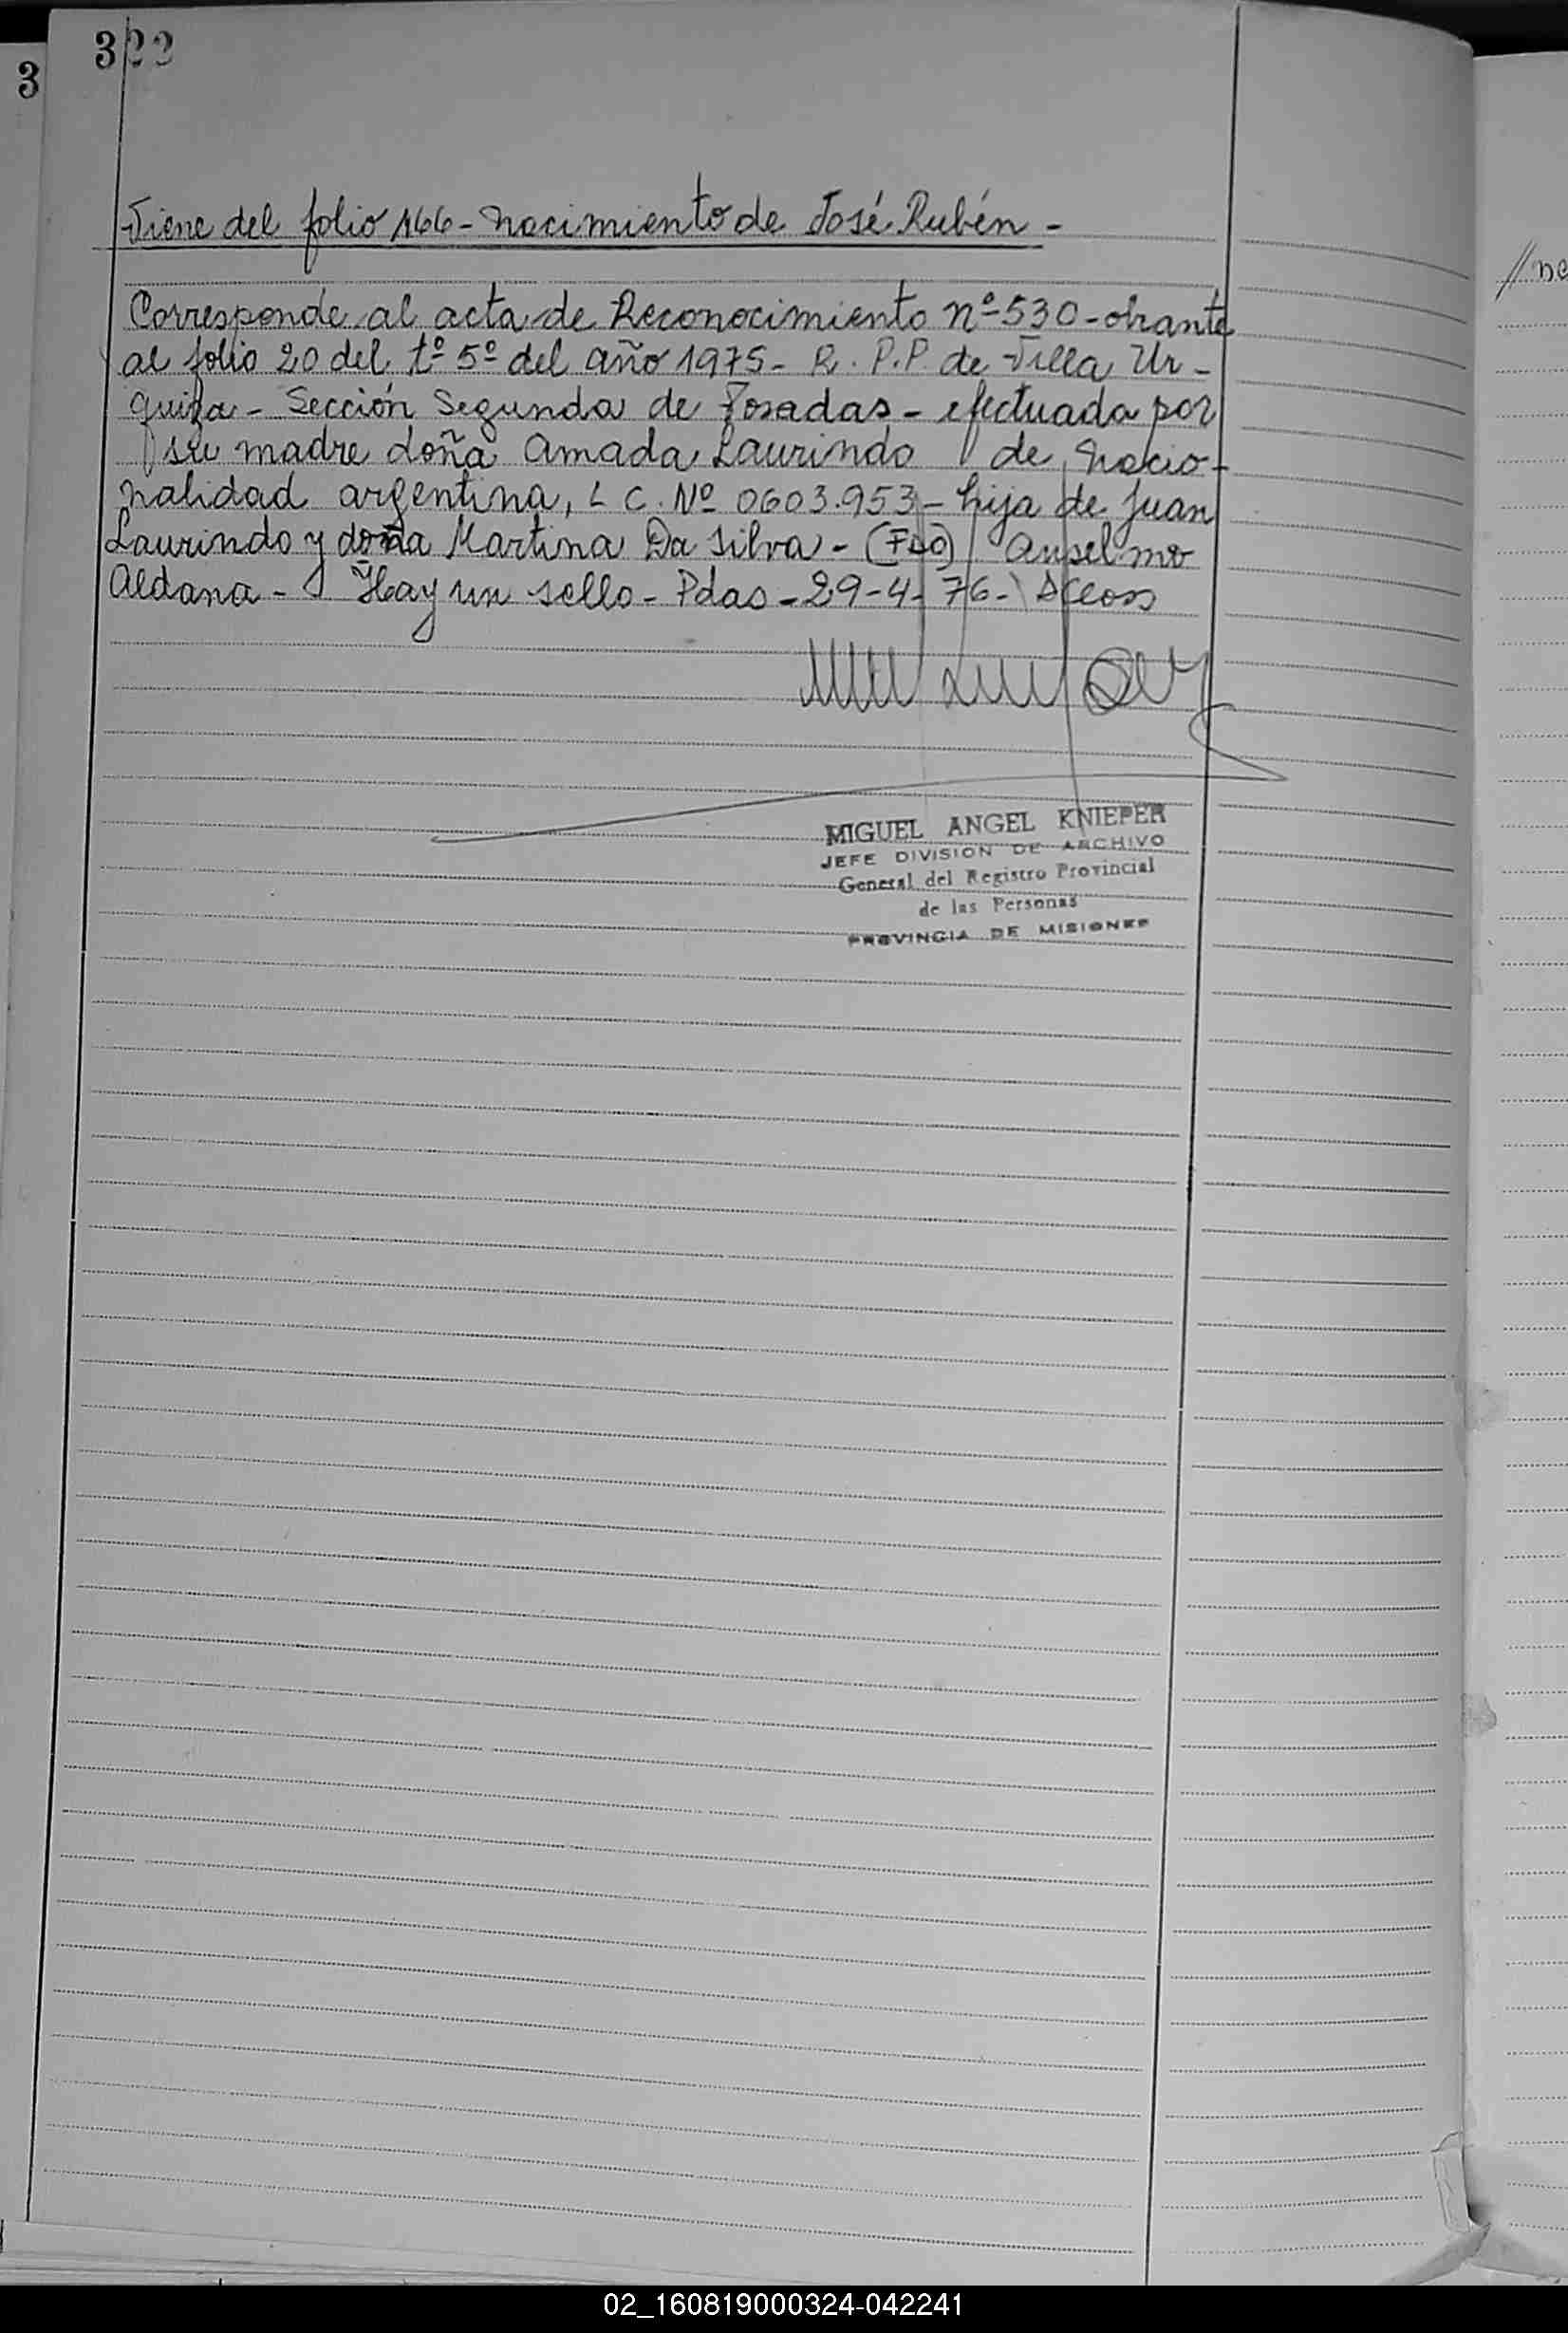 322
3
Viene del folio 166 - Nacimiento de José Rubén -
Corresponde al acta de Reconocimiento nº 530 - obrante
al folio 20 del tº 5º del año 1975 - R. P. P. de Villa Ur-
quiza - Sección Segunda de Posadas - efectuada por
su madre doña Amada Laurindo de nacio-
nalidad argentina, L C. Nº 0603.953 - hija de Juan
Laurindo y doña Martina Da Silva - (Fdo) Anselmo
Aldana - Hay un sello - Pdas - 29-4-76 -
MIGUEL ANGEL KNIEPER
JEFE DIVISION DE ARCHIVO
General del Registro Provincial
de las Personas
PROVINCIA DE MISIONES
02_160819000324-042241